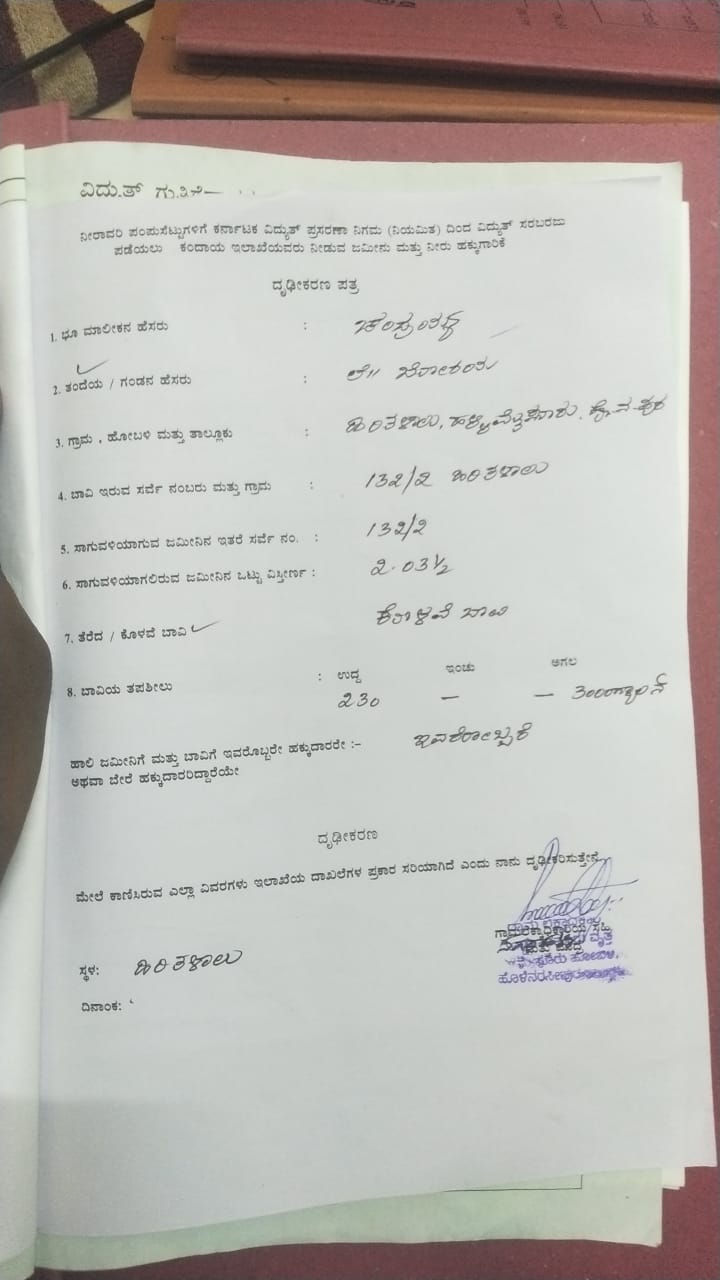 ವಿದ್ಯುತ್
ನೀರಾವರಿ ಪಂಪುಸೆಟ್ಟುಗಳಿಗೆ ಕರ್ನಾಟಕ ವಿದ್ಯುತ್ ಪ್ರಸರಣಾ ನಿಗಮ (ನಿಯಮಿತ) ದಿಂದ ವಿದ್ಯುತ್ ಸರಬರಜು
ಪಡೆಯಲು ಕಂದಾಯ ಇಲಾಖೆಯವರು ನೀಡುವ ಜಮೀನು ಮತ್ತು ನೀರು ಹಕ್ಕುಗಾರಿಕೆ
ದೃಢೀಕರಣ ಪತ್ರ
1. ಭೂ ಮಾಲೀಕನ ಹೆಸರು :
2. ತಂದೆಯ / ಗಂಡನ ಹೆಸರು : ಲೇ||
3. ಗ್ರಾಮ , ಹೋಬಳಿ ಮತ್ತು ತಾಲ್ಲೂಕು : ಹಿರಿತಳಾಲು,
4. ಬಾವಿ ಇರುವ ಸರ್ವೆ ನಂಬರು ಮತ್ತು ಗ್ರಾಮ : 132/2 ಹಿರಿತಳಾಲು
5. ಸಾಗುವಳಿಯಾಗುವ ಜಮೀನಿನ ಇತರೆ ಸರ್ವೆ ನಂ. : 132/2
6. ಸಾಗುವಳಿಯಾಗಲಿರುವ ಜಮೀನಿನ ಒಟ್ಟು ವಿಸ್ತೀರ್ಣ : 2.03½
7. ತೆರೆದ / ಕೊಳವೆ ಬಾವಿ ಕೊಳವೆ ಬಾವಿ
8. ಬಾವಿಯ ತಪಶೀಲು : ಉದ್ದ ಇಂಚು ಅಗಲ
230 — —
ಹಾಲಿ ಜಮೀನಿಗೆ ಮತ್ತು ಬಾವಿಗೆ ಇವರೊಬ್ಬರೇ ಹಕ್ಕುದಾರರೇ :– ಇವರೊಬ್ಬರೆ
ಅಥವಾ ಬೇರೆ ಹಕ್ಕುದಾರರಿದ್ದಾರೆಯೇ
ದೃಢೀಕರಣ
ಮೇಲೆ ಕಾಣಿಸಿರುವ ಎಲ್ಲಾ ವಿವರಗಳು ಇಲಾಖೆಯ ದಾಖಲೆಗಳ ಪ್ರಕಾರ ಸರಿಯಾಗಿದೆ ಎಂದು ನಾನು ದೃಢೀಕರಿಸುತ್ತೇನೆ
ಸಹಿ
ವೃತ್ತ
ಹೋಬಳಿ,
ಸ್ಥಳ: ಹಿರಿತಳಾಲು
ದಿನಾಂಕ: